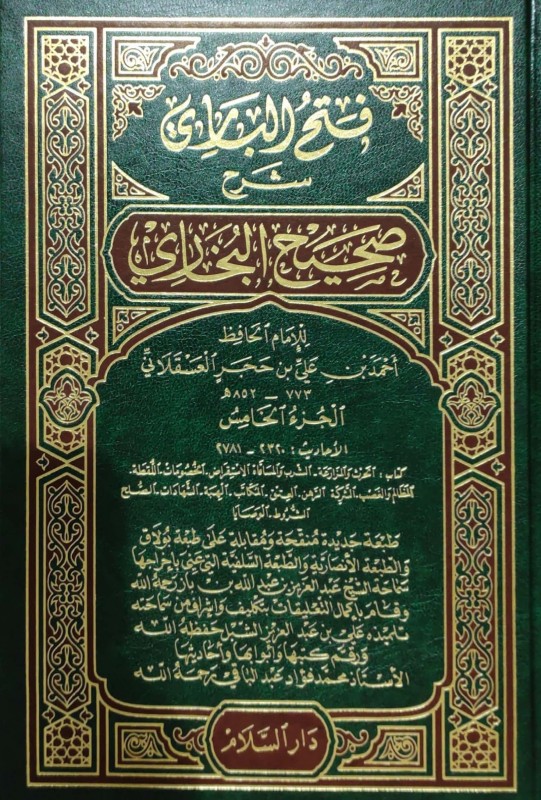 فتح الباري
شرح
صحيح البخاري
للإمام الحافظ
أحمد بن علي بن حجر العسقلاني
٧٧٣ - ٨٥٢ هـ
الجزء الخامس
الأحاديث: ٢٣٢٠ - ٢٧٨١
كتاب: الحرث والمزارعة. الشرب والمساقاة. الاستقراض. الخصومات. اللقطة.
المظالم والغصب. الشركة. الرهن. العتق. المكاتب. الهبة. الشهادات. الصلح
الشروط. الوصايا
طبعة جديدة منقحة ومقابلة على طبعة بولاق
والطبعة الأنصارية والطبعة السلفية التي عني بإخراجها
سماحة الشيخ عبد العزيز بن عبد الله بن باز رحمه الله
وقام بإكمال التعليقات بتكليف وإشراف من سماحته
تلميذه علي بن عبد العزيز الشبل حفظه الله
ورقم كتبها وأبوابها وأحاديثها
الأستاذ محمد فؤاد عبد الباقي رحمه الله
دار السلام